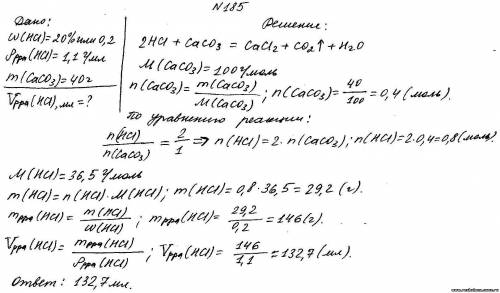 №185
Дано:
W(HCl)=20% или 0,2
ρ р-ра(HCl)=1,1 г/мл
m(CaCO3)=40г
Vр-ра(HCl), мл=?
Решение:
2HCl + CaCO3 = CaCl2 + CO2↑ + H2O
M(CaCO3)=100 г/моль
n(CaCO3)= m(CaCO3)/M(CaCO3); n(CaCO3)= 40/100 =0,4(моль).
По уравнению реакции:
n(HCl)/n(CaCO3) = 2/1 ⇒ n(HCl)=2·n(CaCO3); n(HCl)=2·0,4=0,8(моль)
M(HCl)=36,5 г/моль
m(HCl)=n(HCl)·M(HCl); m(HCl)=0,8·36,5=29,2(г).
mр-ра(HCl)= m(HCl)/W(HCl); mр-ра(HCl)= 29,2/0,2 =146(г).
Vр-ра(HCl)= mр-ра(HCl)/ρр-ра(HCl); Vр-ра(HCl)= 146/1,1 =132,7(мл).
Ответ: 132,7мл.